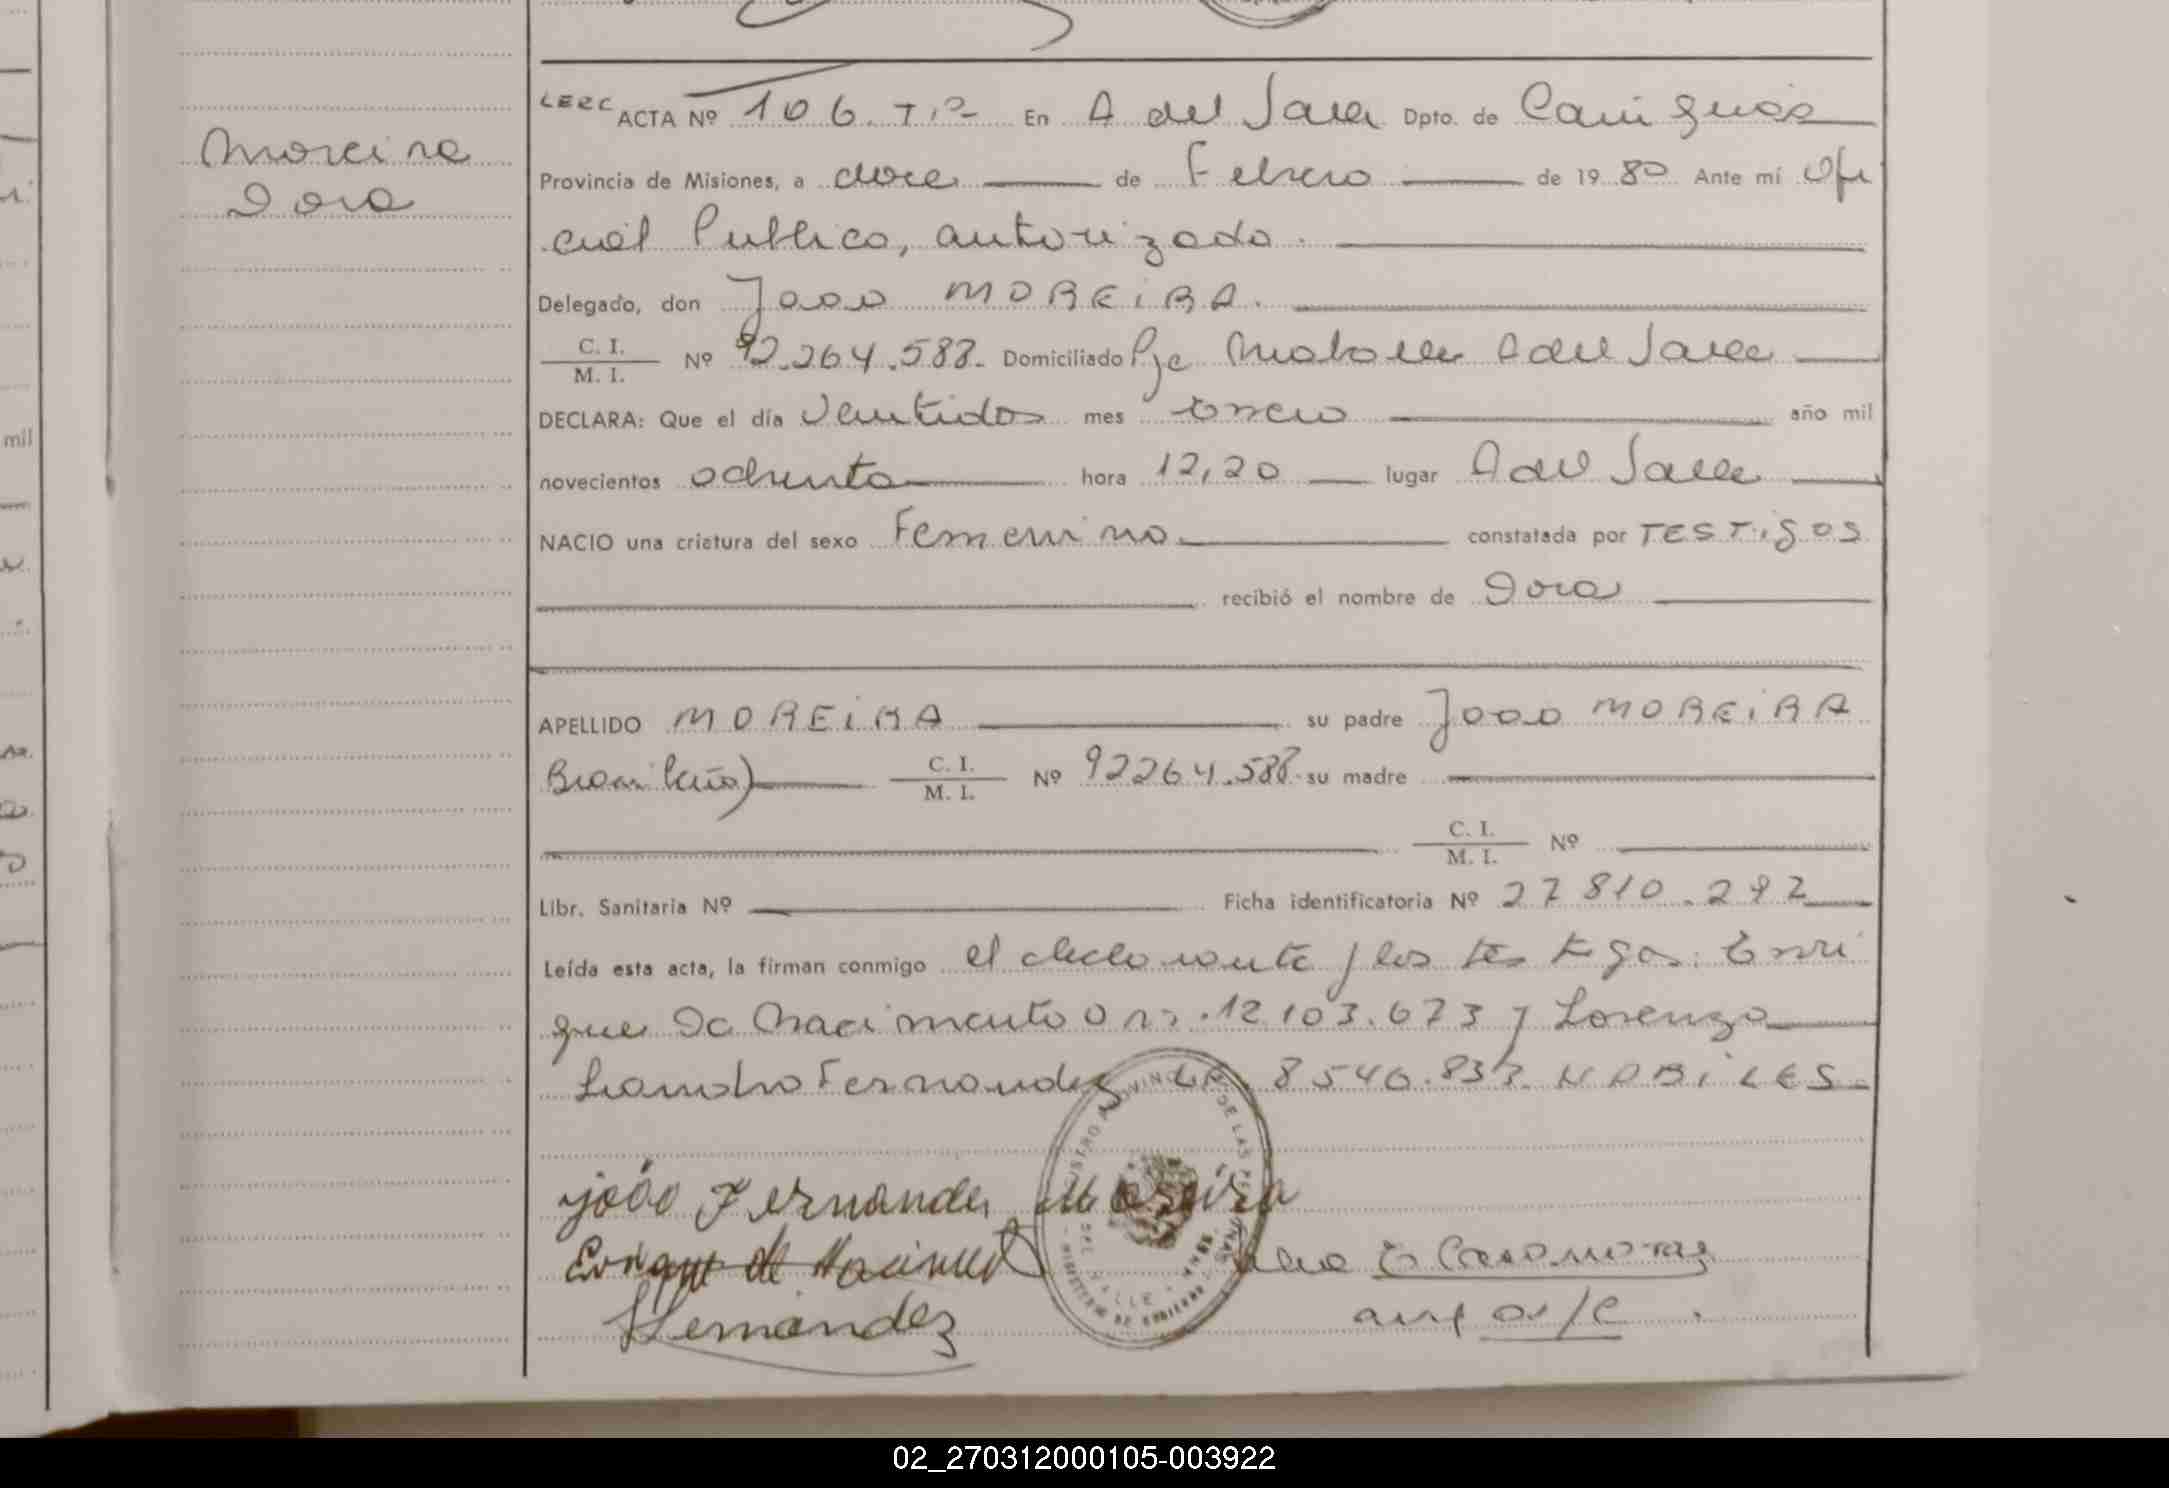 Moreira
Dora
LERC ACTA Nº 106. T.1º En A del Valle Dpto. de Cainguás
Provincia de Misiones, a doce de Febrero de 1980 Ante mí Ofi
cial Publico, autorizado.
Delegado, don Joao MOREIRA.
C. I. / M. I. Nº 92.264.588. Domiciliado Pje A del Valle
DECLARA: Que el día Veintidos mes Enero año mil
novecientos ochenta hora 12,20 lugar A del Valle
NACIO una criatura del sexo Femenino constatada por TESTigos
recibió el nombre de Dora
APELLIDO MOREIRA su padre Joao MOREIRA
Brasileño) C. I. / M. I. Nº 92264.588. su madre
C. I. / M. I. Nº
Libr. Sanitaria Nº Ficha identificatoria Nº 27810.292
Leída esta acta, la firman conmigo el declarante y los testigos: Enri
que Do Nacimento 12.103.673 y Lorenzo
Leandro Fernandez LE. 8546.833. HABILES.
joão Fernandes Moreira
Enrique do Nacimento
Fernández
02_270312000105-003922